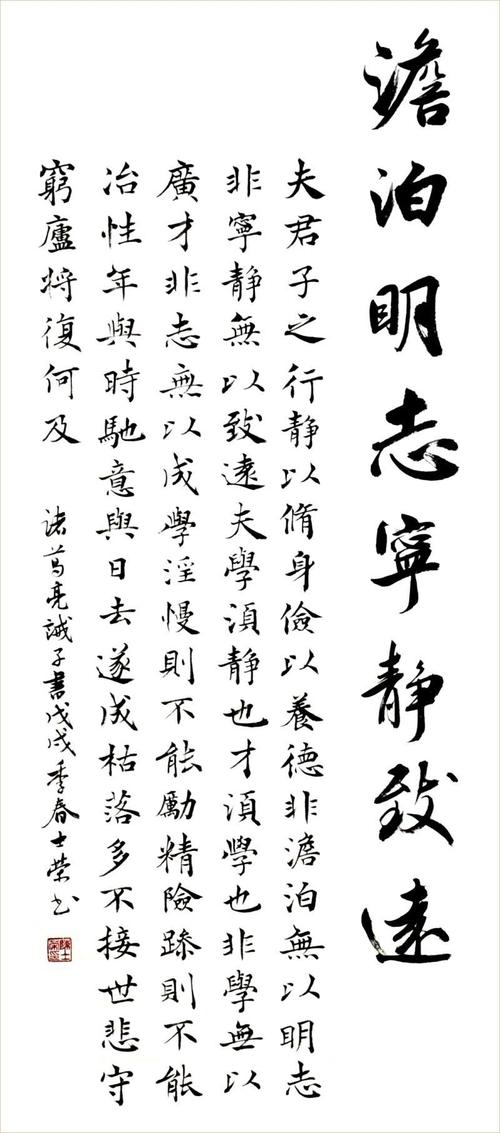 澹泊明志寧静致遠
夫君子之行静以脩身儉以養德非澹泊無以明志
非寧静無以致遠夫學湏静也才湏學也非學無以
廣才非志無以成學淫慢則不能勵精險躁則不能
冶性年與時馳意與日去遂成枯落多不接世悲守
窮廬將復何及
諸葛亮誡子書戊戌季春士荣书